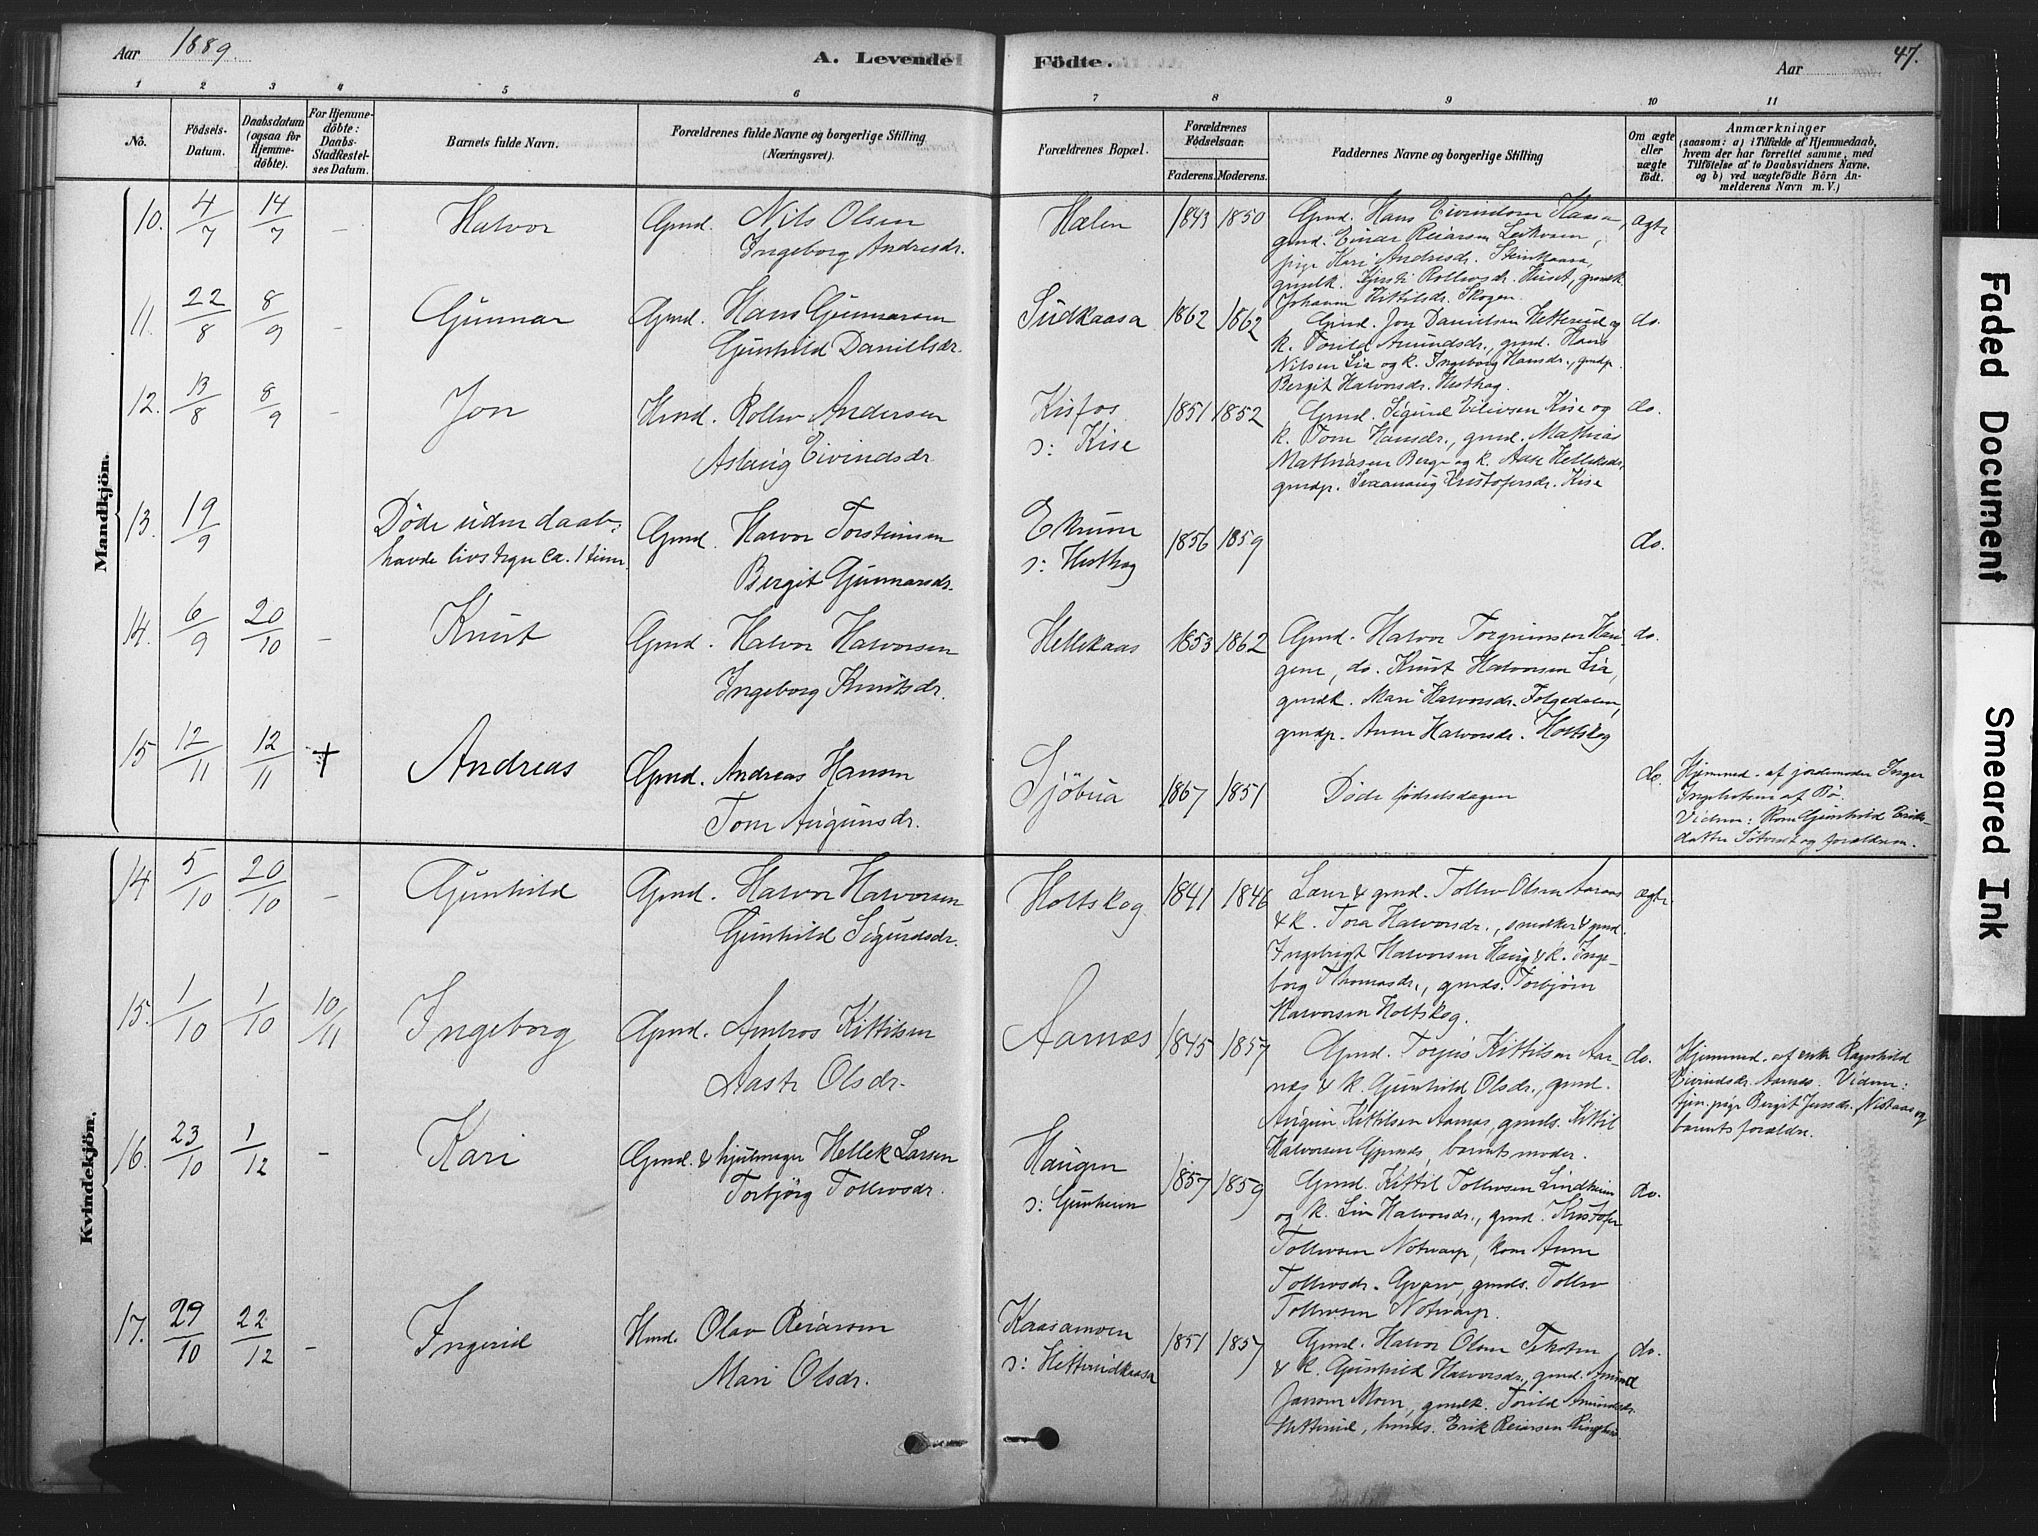 Aar 1889.
A. Levende Födte.
Aar
47.
1 2 3 4 5 6 7 8 9 10 11
No.
Födsels-Datum.
Daabsdatum (ogsaa for Hjemme-döbte).
For Hjemme-döbte: Daabs-Stadfæstel-ses Datum.
Barnets fulde Navn.
Forældrenes fulde Navne og borgerlige Stilling (Næringsvei).
Forældrenes Bopæl.
Forældrenes Födselsaar.
Faderens. Moderens.
Faddernes Navne og borgerlige Stilling
Om ægte eller uægte födt.
Anmærkninger
(saasom: a) i Tilfælde af Hjemmedaab,
hvem der har forrettet samme, med
Tilföielse af to Daabsvidners Navne,
og b) ved uægtefödte Börn An-
melderens Navn m. V.)
Mandkjön.
10. 4/7 14/7 - Halvor Gmd. Nils Olsen
Ingeborg Andresdr.
Hælin 1843 1850
Gmd. Hans Eivindsen Kaasa,
gmd. Einar Reiarsen Leikvam,
pige Kari Andresdr. Steinkaasa,
gmdk. Kjersti Rollevsdr. Huset, gmdk.
Johanne Kittilsdr. Skogen.
ægte
11. 22/8 8/9 - Gunnar Gmd. Hans Gunnarsen
Gunhild Danielsdr.
Sudkaasa 1862 1862
Gmd. Jon Danielsen Hetterud og
k. Torild Amundsdr., gmd. Hans
Nilsen Lia og k. Ingeborg Hansdr., gmdp.
Bergit Halvorsdr. Hesthag.
do.
12. 13/8 8/9 - Jon Hmd. Rollev Andersen
Aslaug Eivindsdr
Kisfos
ɔ: Kise 1851 1852
Gmd. Sigurd Eilivsen Kise og
k. Tone Hansdr., gmd. Mathias
Mathiasen Berge og k. Aase Helleksdr.
gmdp. Svanaug Kristofersdr. Kise
do.
13. 19/9 Døde uden daab;
havde livstegn ca. 1 time.
Gmd. Halvor Torsteinsen
Bergit Gunnarsdr.
Ekrum
ɔ: Hesthag 1856 1859 do.
14. 6/9 20/10 - Knut Gmd. Halvor Halvorsen
Ingeborg Knutsdr.
Hellekaas 1853 1862
Gmd. Halvor Torgrimsen Hau-
gene, do. Knut Halvorsen Lia,
gmdk. Mari Halvorsdr. Folgedalen,
gmdp. Anne Halvorsdr. Holtskog
do.
15 12/11 12/11 + Andreas Gmd. Andreas Hansen
Tone Augunsdr.
Sjöbua 1867 1851
Døde fødselsdagen
do.
Hjemmed. af jordemoder Inger
Ingebretsen af Bø.
Vidner: Kone Gunhild Eriks-
datter Sötveit og forældrene.
Kvindekjön.
14. 5/10 20/10 - Gunhild Gmd. Halvor Halvorsen
Gunhild Sigurdsdr.
Holtskog 1841 1846
Lærer & gmd. Tollev Olsen Aaraas
& k. Tora Halvorsdr., snedker & gmd.
Ingebrigt Halvorsen Haug & k. Inge-
borg Thomasdr., gmds. Torbjörn
Halvorsen Holtskog.
ægte
15. 1/10 1/10 10/11 Ingeborg Gmd. Ambros Kittilsen
Aaste Olsdr.
Aarnæs 1845 1857
Gmd. Torjus Kittilsen Aar-
næs & k. Gunhild Olsdr., gmd.
Augun Kittilsen Aarnæs, gmds. Kittil
Halvorsen, barnets moder.
do.
Hjemmed. af enke Ragnhild
Eivindsdr. Aarnæs. Vidner:
tjen. pige Bergit Jensdr. Nistaas og
barnets forældre.
16. 23/10 1/12 - Kari Gmd. & hjulmager Hellek Larsen
Torbjörg Tollevsdr.
Haugen
ɔ: Gunheim 1857 1859
Gmd. Kittil Tollevsen Lindheim
og k. Liv Halvorsdr., gmd. Kristofer
Tollevsen Notevarp, kone Anne
Tollevsdr. Gvarv, gmds. Tollev
Tollevsen Notevarp.
do.
17. 29/10 22/12 - Ingerid Hmd. Olav Reiarsen
Mari Olsdr.
Kaasamoen
ɔ: Hetterudkaasa 1851 1857
Gmd. Halvor Olsen Teksten
& k. Gunhild Halvorsdr., gmd. Amund
Jansen Moen, gmdk. Torild Amundsdr.
Hetterud, hmds. Erik Reiarsen
do.
Faded Document
Smeared Ink